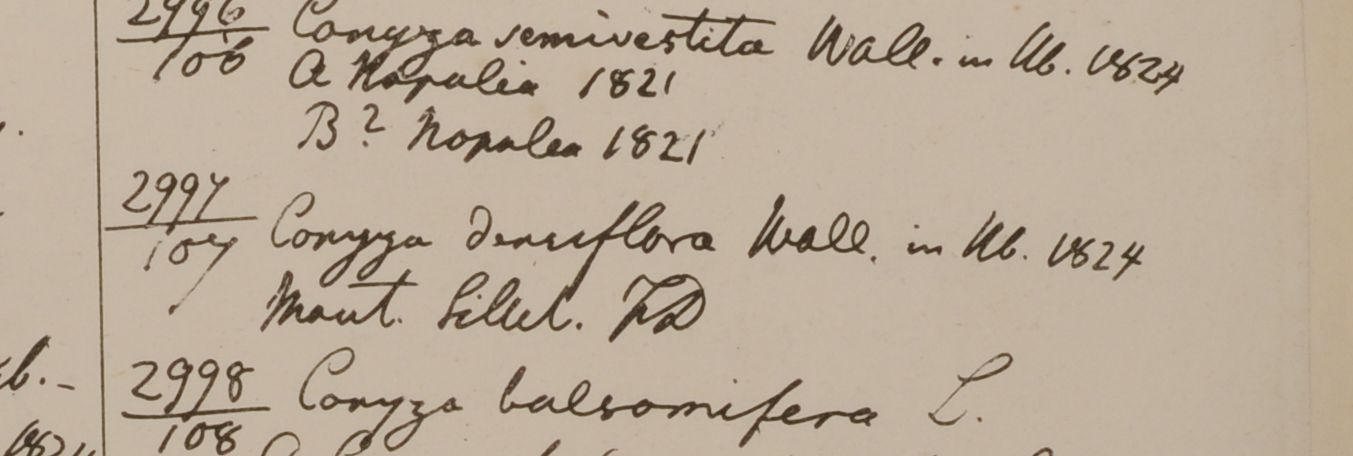 2996 Conyza semivestita Wall. in Hb. 1824
106 a Napalia 1821
B? Napalea 1821
2997
107 Conyza densiflora Wall. in Hb. 1824
Mont. Sillet. FD
2998 Conyza balsamifera L.
108